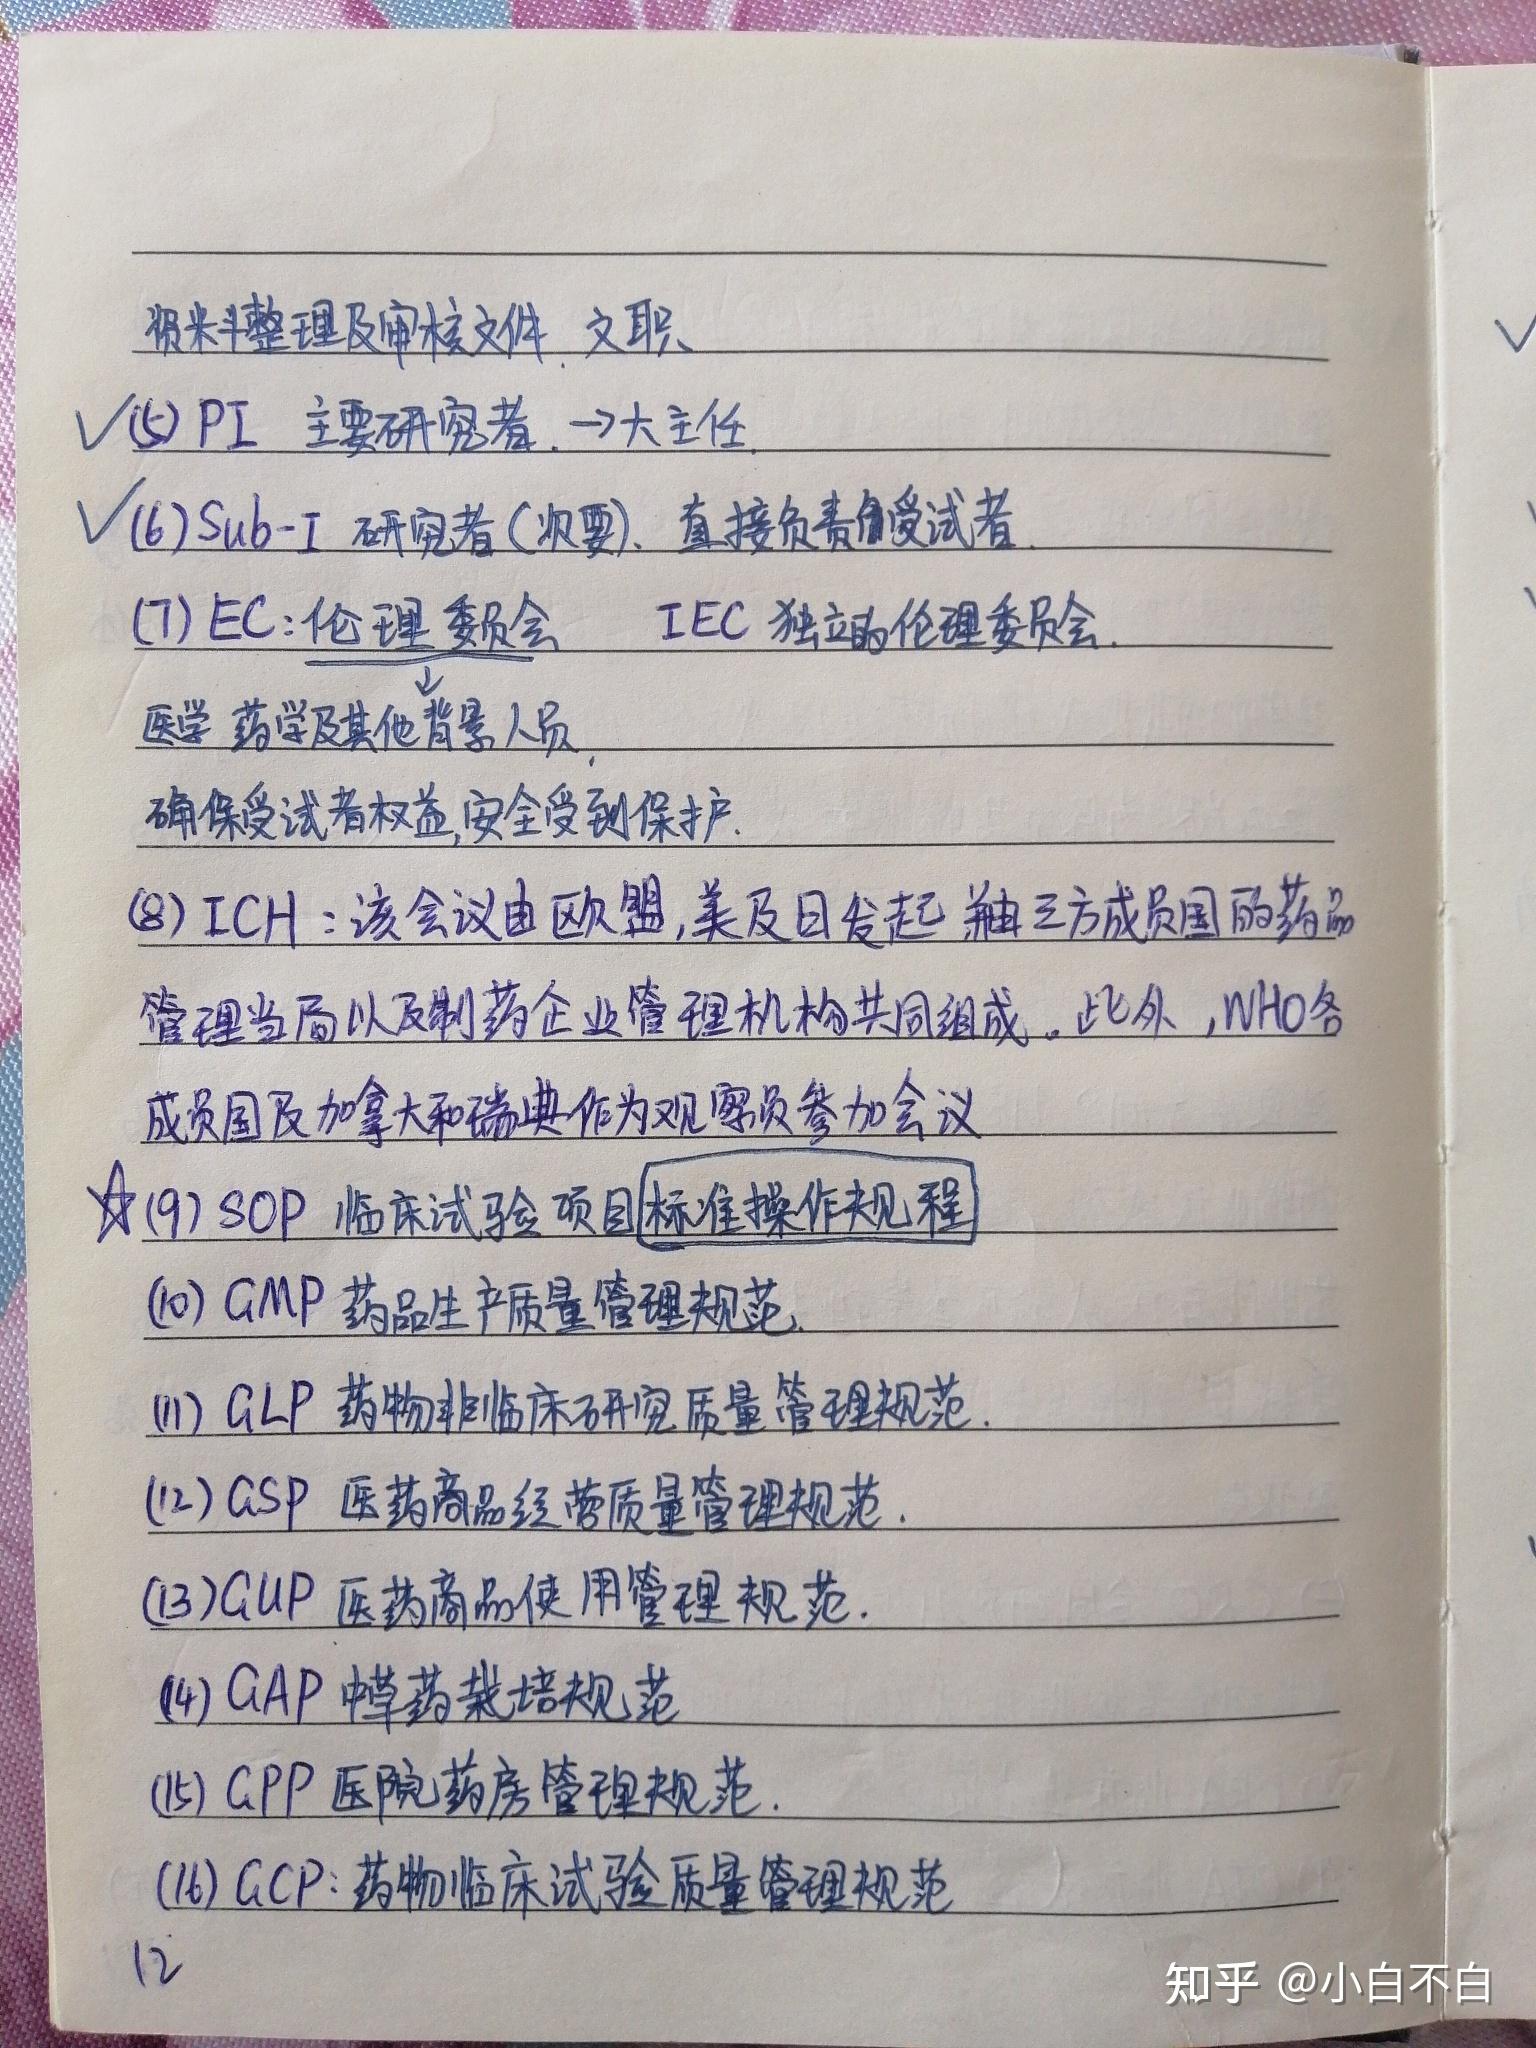 资料整理及审核文件、文职、
(5) PI 主要研究者、→大主任.
(6) Sub-I 研究者(次要)、直接负责受试者.
(7) EC:伦理委员会 IEC 独立的伦理委员会.
↓
医学 药学及其他背景人员、
确保受试者权益,安全受到保护.
(8) ICH:该会议由欧盟,美及日发起 并由三方成员国的药品
管理当局以及制药企业管理机构共同组成。此外,WHO各
成员国及加拿大和瑞典作为观察员参加会议
☆(9) SOP 临床试验项目标准操作规程
(10) GMP 药品生产质量管理规范.
(11) GLP 药物非临床研究质量管理规范.
(12) GSP 医药商品经营质量管理规范.
(13) GUP 医药商品使用管理规范.
(14) GAP 中草药栽培规范
(15) GPP 医院药房管理规范.
(16) GCP:药物临床试验质量管理规范
12
知乎 @小白不白